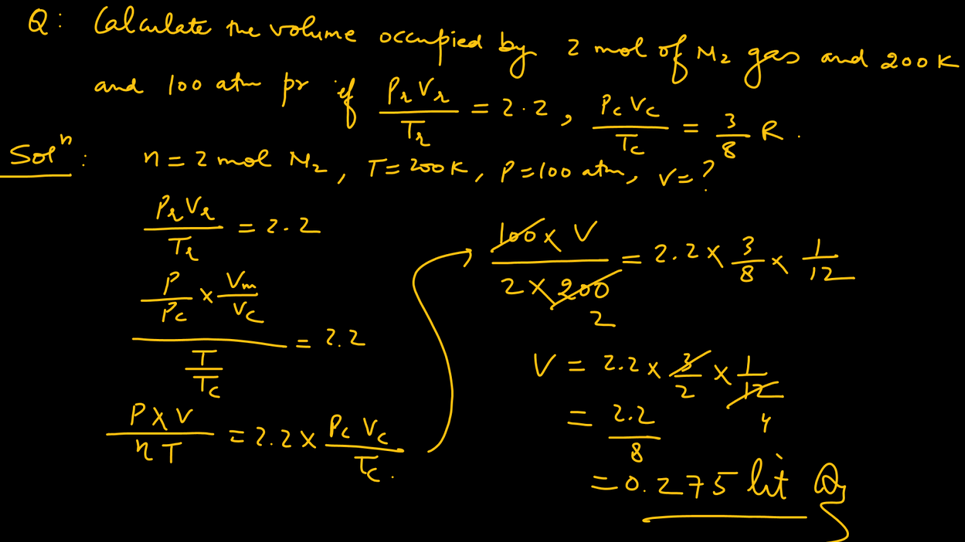 Q: Calculate the volume occupied by 2 mol of N₂ gas and 200K
and 100 atm pr if PrVr/Tr = 2.2, PcVc/Tc = 3/8 R.
Solⁿ: n = 2 mol N₂, T = 200K, P = 100 atm, V = ?
PrVr/Tr = 2.2
(P/Pc × Vm/Vc)/(T/Tc) = 2.2
P×V/nT = 2.2 × PcVc/Tc.
100 × V/2 × 200 2 = 2.2 × 3/8 × 1/12
V = 2.2 × 3/2 × 1/12 4
= 2.2/8
= 0.275 lit